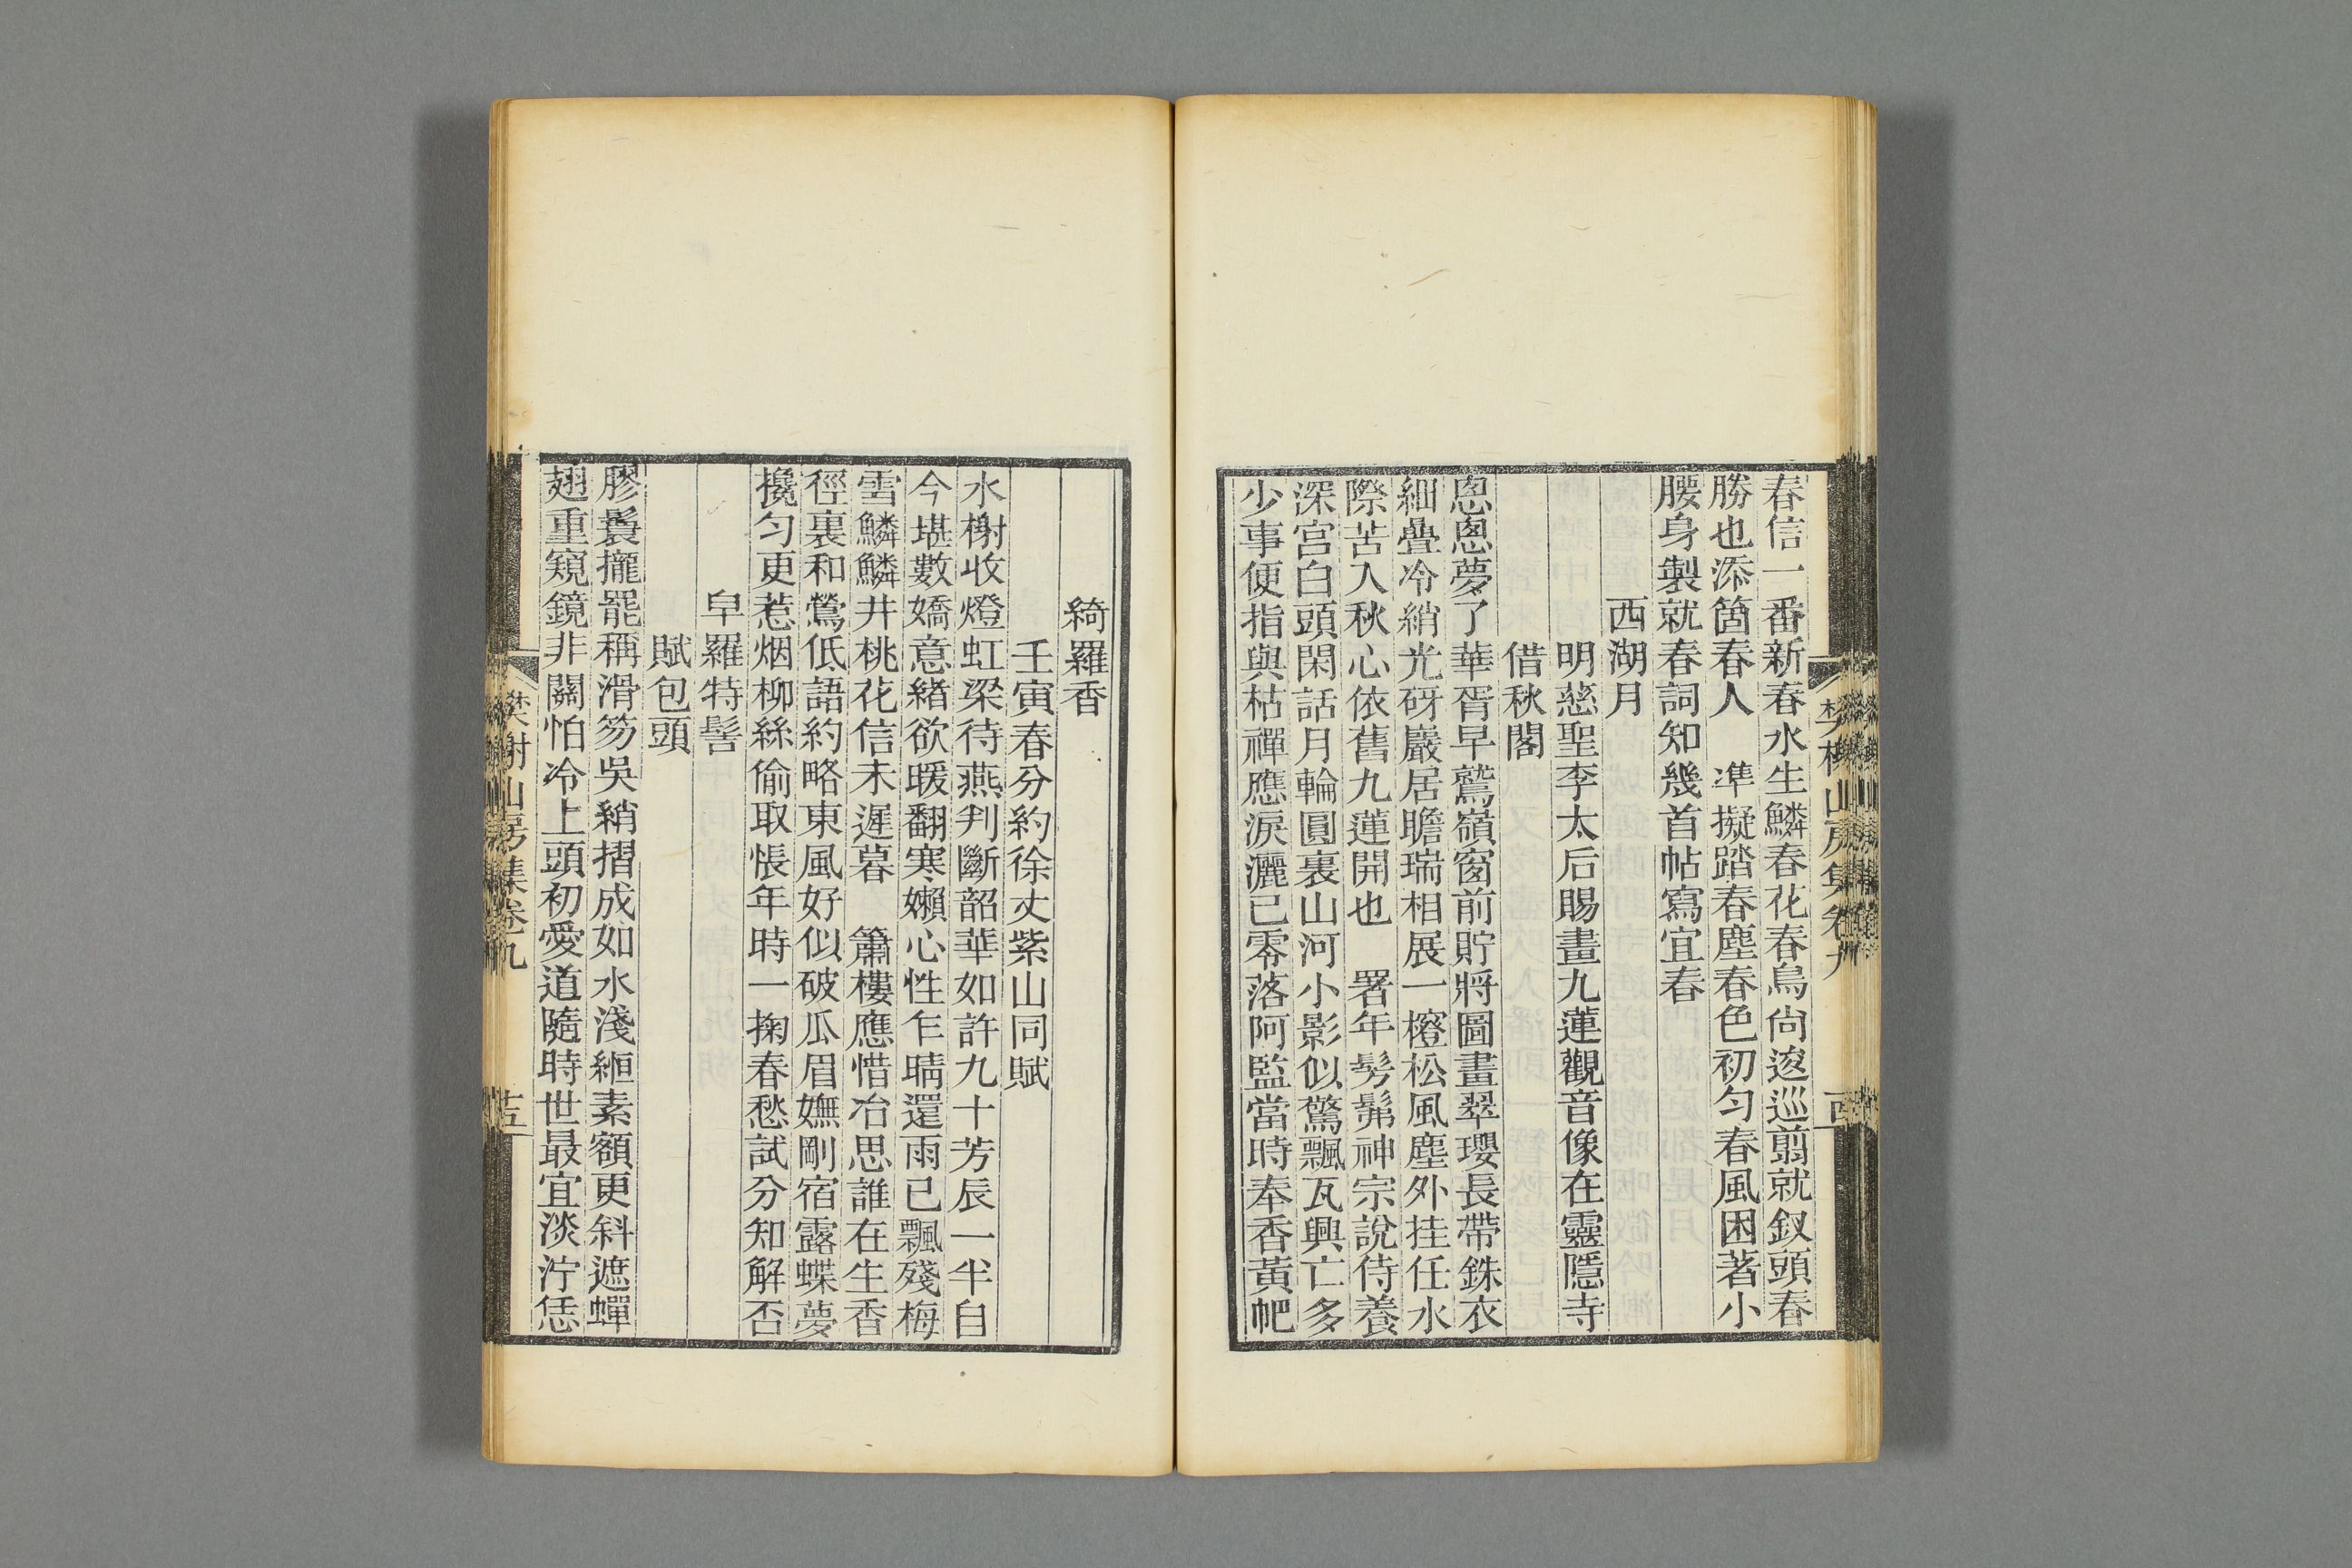 春信一番新春水生鱗春花春鳥尙逡巡翦就釵頭春
勝也添箇春人　準擬踏春塵春色初勻春風困著小
腰身製就春詞知幾首帖寫宜春
西湖月
明慈聖李太后賜畫九蓮觀音像在靈隱寺
借秋閣
悤悤夢了華胥早鷲嶺窗前貯將圖畫翠瓔長帶銖衣
細疊冷綃光砑巖居瞻瑞相展一橙松風塵外挂任水
際苦入秋心依舊九蓮開也　署年髣髴神宗說侍養
深宮白頭閑話月輪圓裏山河小影似驚飄瓦興亡多
少事便指與枯禪應淚灑已零落阿監當時奉香黃帊
樊榭山房集卷九
綺羅香
壬寅春分約徐丈紫山同賦
水榭收燈虹梁待燕判斷韶華如許九十芳辰一半自
今堪數嬌意緒欲暖翻寒嬾心性乍晴還雨已飄殘梅
雪鱗鱗井桃花信未遲暮　簫樓應惜冶思誰在生香
徑裏和鶯低語約略東風好似破瓜眉嫵剛宿露蝶夢
攙勻更惹烟柳絲偷取悵年時一掬春愁試分知解否
皁羅特髻
賦包頭
膠鬟攏罷稱滑笏吳綃摺成如水淺緪素額更斜遮蟬
翅重窺鏡非關怕冷上頭初愛道隨時世最宜淡泞恁
樊榭山房集卷九
十五